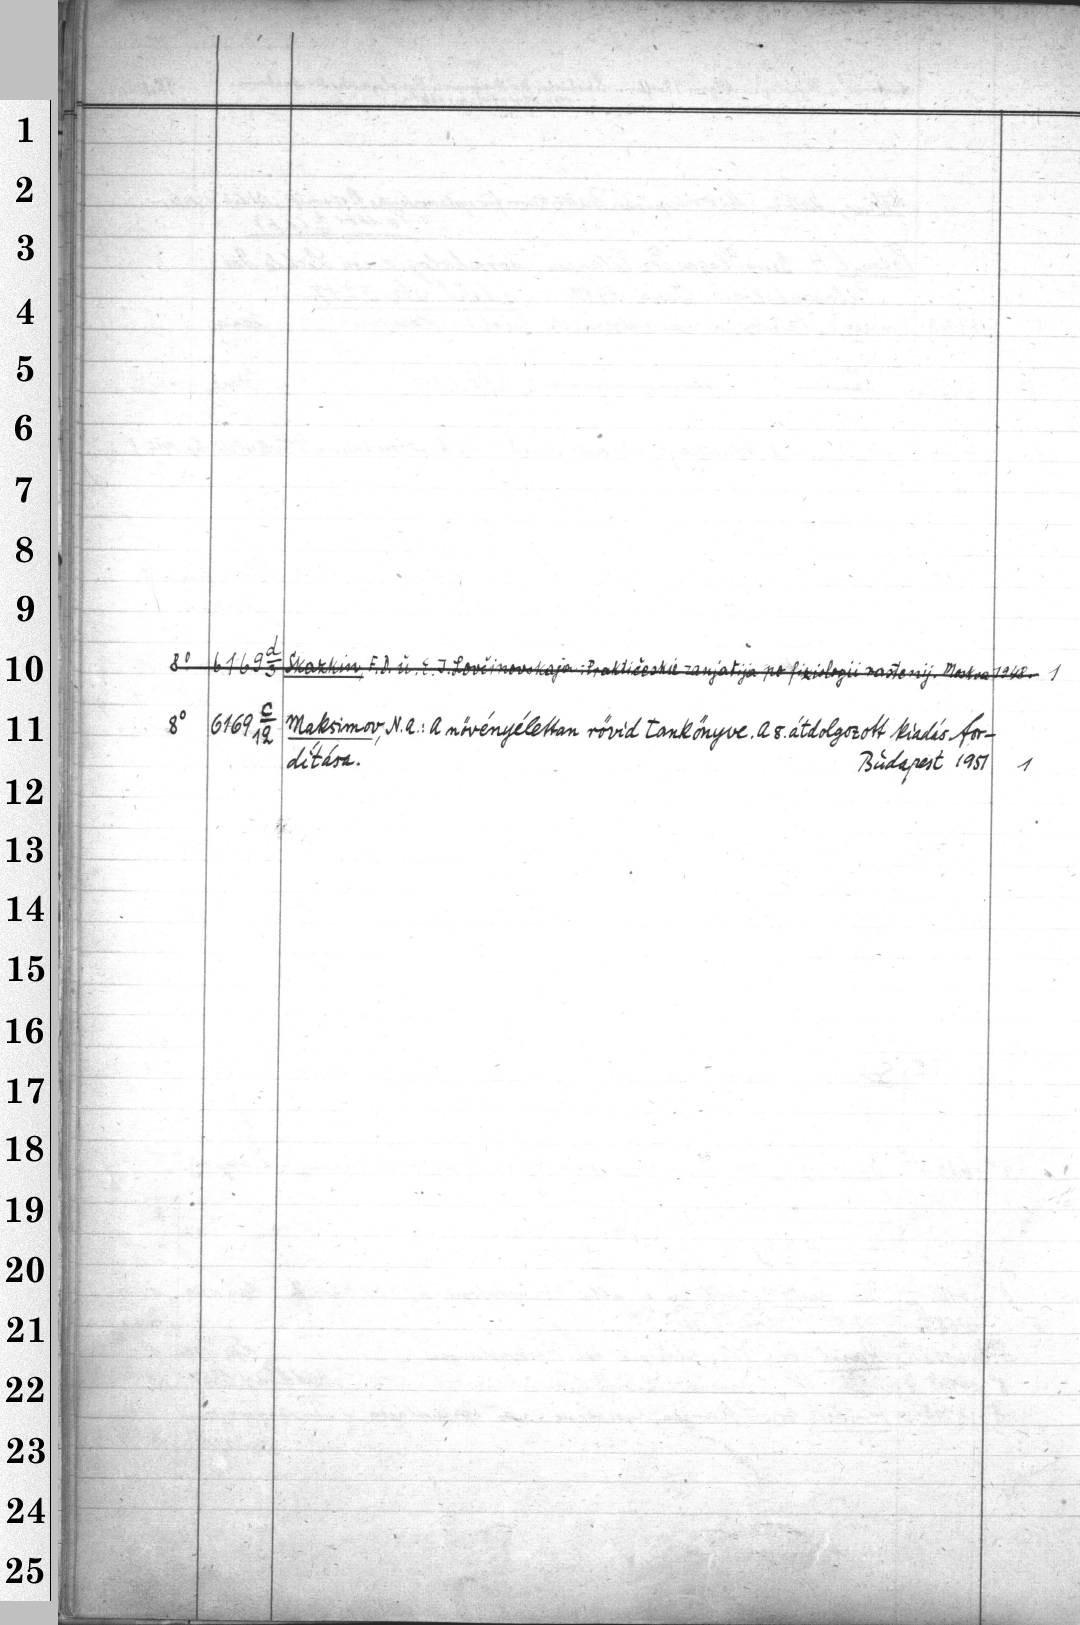 1
2
3
4
5
6
7
8
9
10
8° 6169 d/3 Skazkin, F.D. ü. E. I. Lovčinovskaja: Praktičeskie zanjatija po fiziologii rastenij. Moskva 1948. 1
11
8° 6169 c/12 Maksimov, N.A.: A növényélettan rövid tankönyve. A 8. átdolgozott kiadás for-
dítása. Budapest 1951 1
12
13
14
15
16
17
18
19
20
21
22
23
24
25